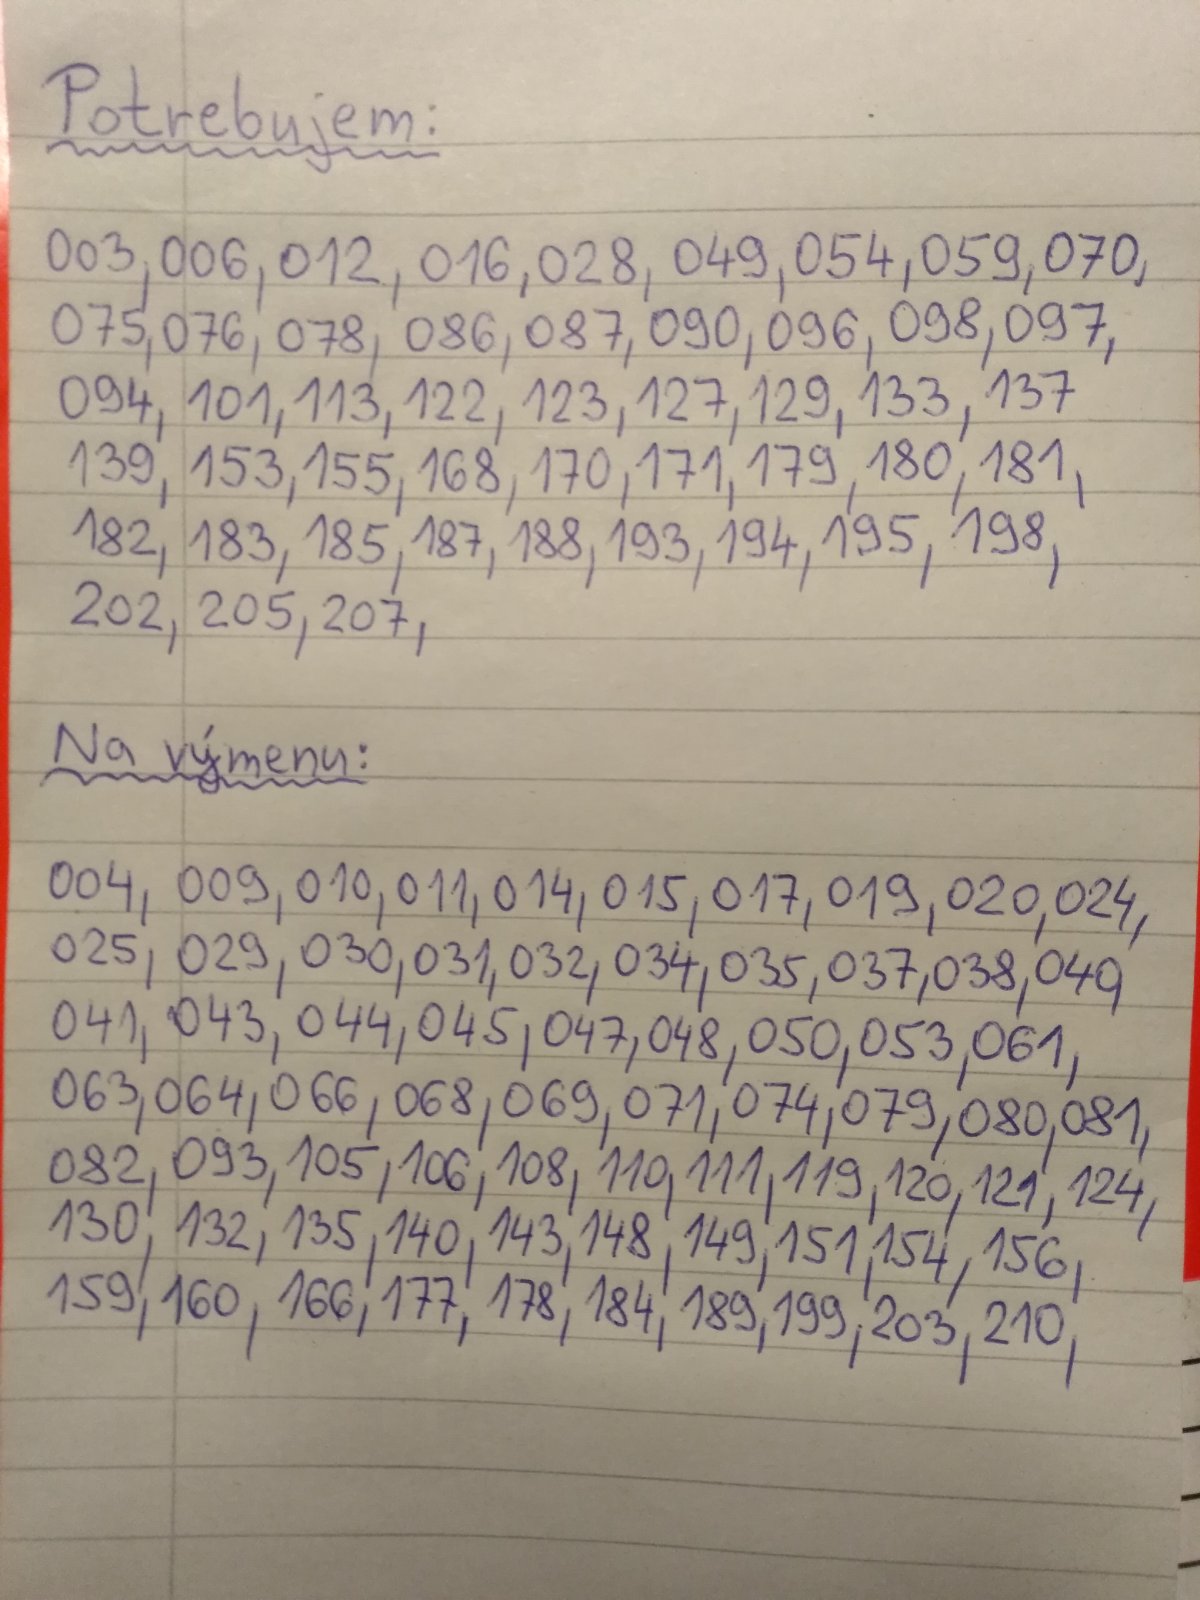 Potrebujem:
003, 006, 012, 016, 028, 049, 054, 059, 070,
075, 076, 078, 086, 087, 090, 096, 098, 097,
094, 101, 113, 122, 123, 127, 129, 133, 137
139, 153, 155, 168, 170, 171, 179, 180, 181,
182, 183, 185, 187, 188, 193, 194, 195, 198,
202, 205, 207,
Na výmenu:
004, 009, 010, 011, 014, 015, 017, 019, 020, 024,
025, 029, 030, 031, 032, 034, 035, 037, 038, 040,
041, 043, 044, 045, 047, 048, 050, 053, 061,
063, 064, 066, 068, 069, 071, 074, 079, 080, 081,
082, 093, 105, 106, 108, 110, 111, 119, 120, 121, 124,
130, 132, 135, 140, 143, 148, 149, 151, 154, 156,
159, 160, 166, 177, 178, 184, 189, 199, 203, 210,